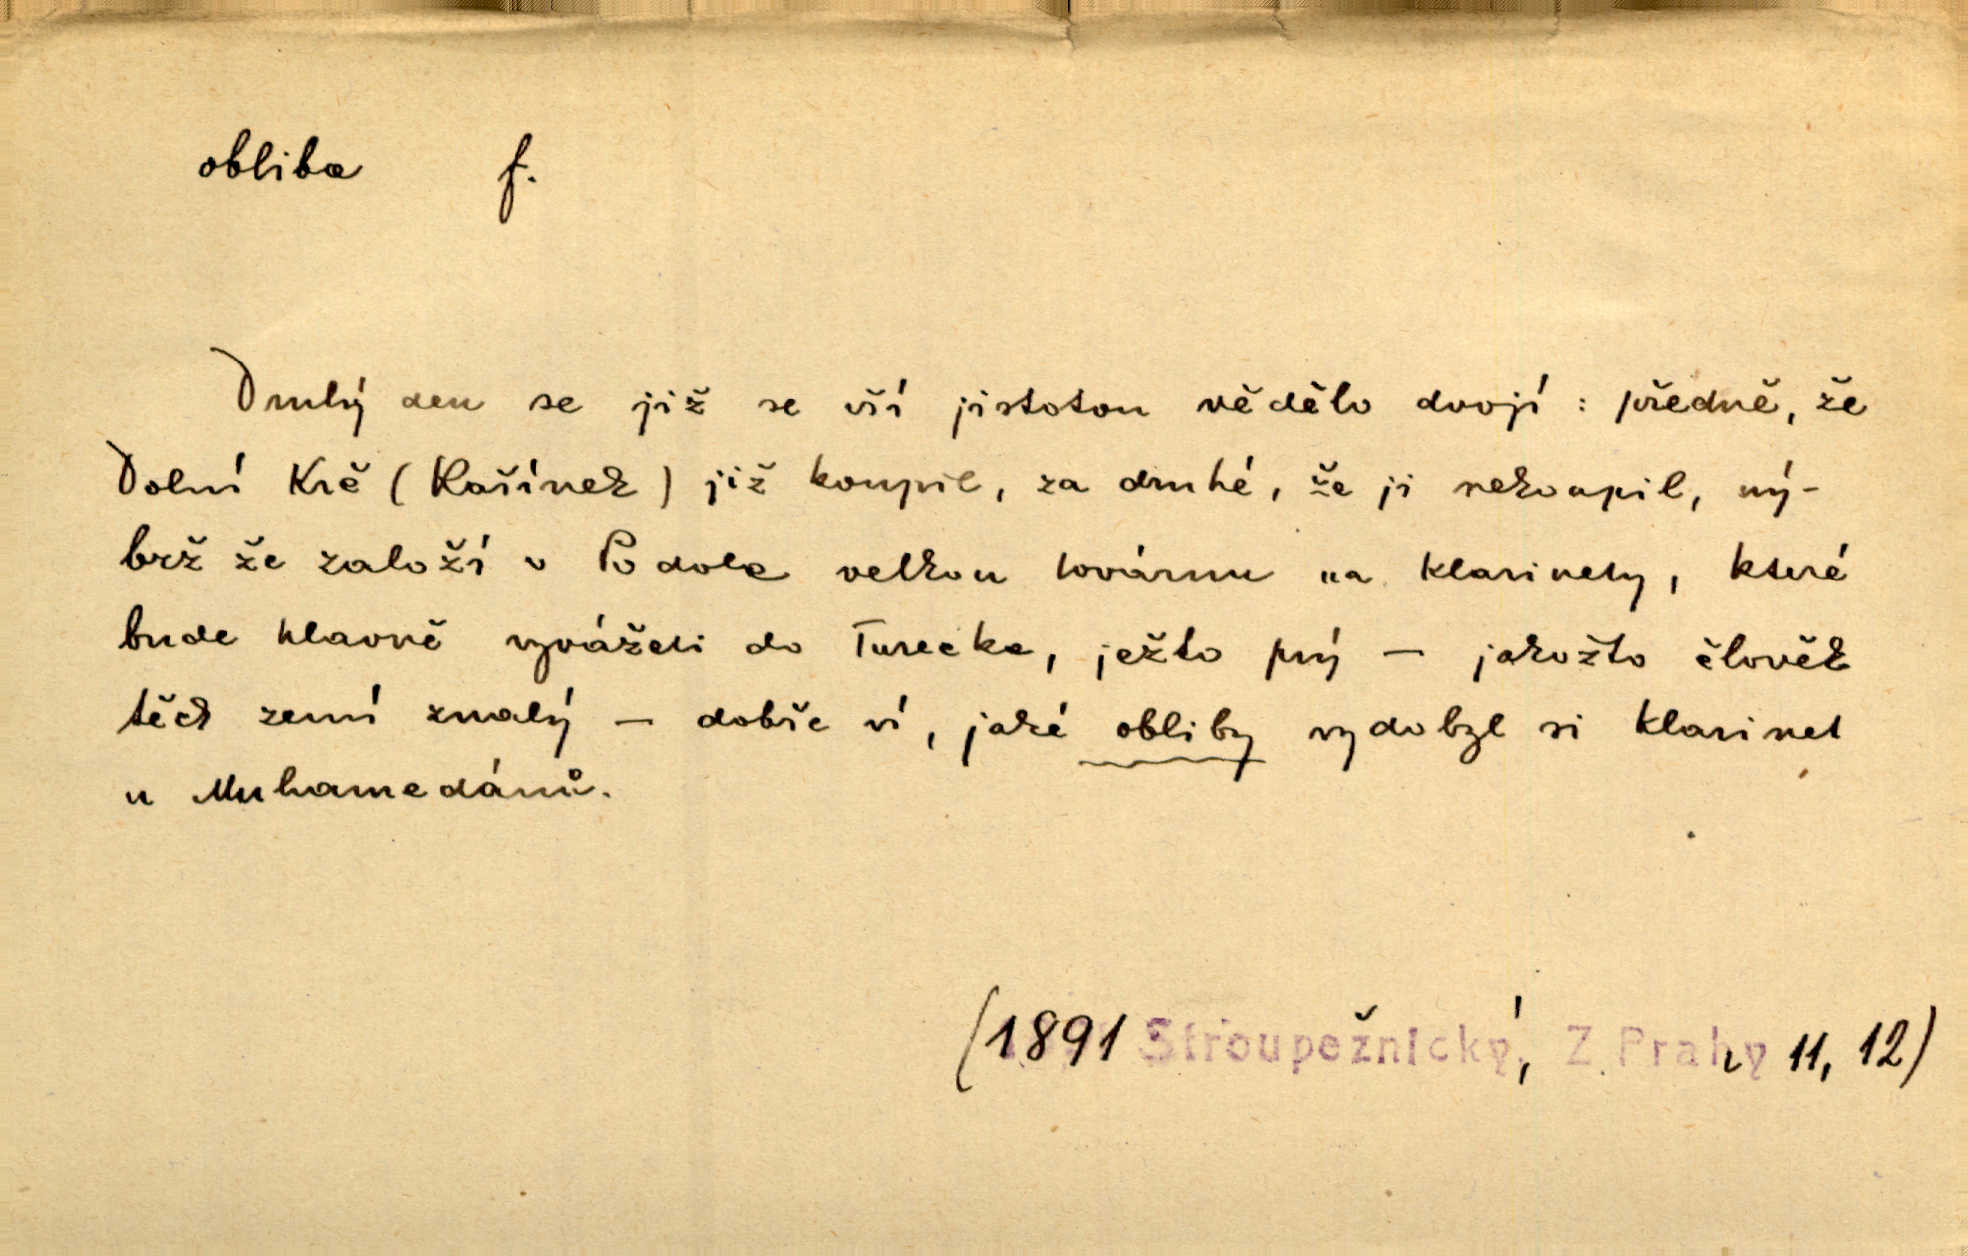 obliba f.
Druhý den se již se vší jistotou vědělo dvojí : předně, že
Dolní Krč (Kašínek) již koupil, za druhé, že ji nekoupil, ný-
brž že založí v Podole velkou továrnu na klarinety, které
bude hlavně vyvážeti do Turecka, ježto prý — jakožto člověk
těch zemí znalý — dobře ví, jaké obliby vydobyl si klarinet
u Muhamedánů.
(1891 Stroupežnický, Z Prahy 11, 12)